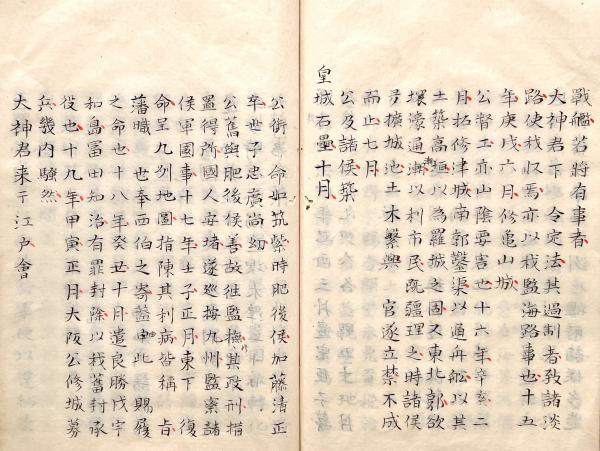 戰艦若將有事者
大神君下 令定法其過制者致諸淡
路使我収焉亦以我監海路事也十五
年庚戊六月修亀山城
公督工亦山陰要害也十六年辛亥二
月拓修津城南郭鑿渠以通舟舩以其
土築高垣以為羅城之固又東北郭欲
壞濠通海以利市民既疆理之時諸侯
専擴城池土木繁興 官遂立禁不成
而止七月
公及諸侯築
皇城石墨十月
公銜 命如筑紫時肥後侯加藤清正
卒世子忠廣尚幼
公舊與肥後侯善故往監撫其政刑措
置得所國人安堵遂巡按九州監察諸
侯軍國事十七年壬子正月東下 復
命呈九州地圖指陳其利病皆稱 旨
藩職 世奉西伯之寄益申此 賜履
之命也十八年癸丑十月遣良勝戍宇
和島冨田知治有罪封除以我舊封承
役也十九年甲寅正月大阪公修城募
兵幾内騒然
大神君来于江戸會